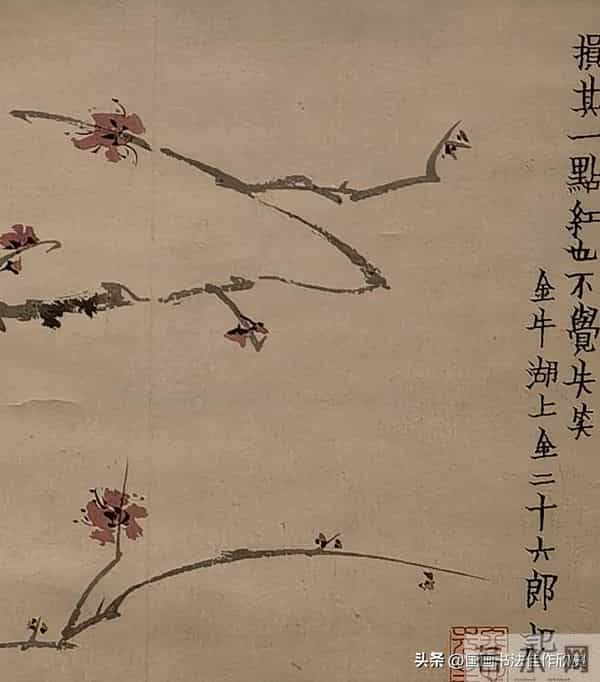 損其一點紅也不覺失笑
金牛湖上金二十六郎記
头条 @国画书法佳作欣赏